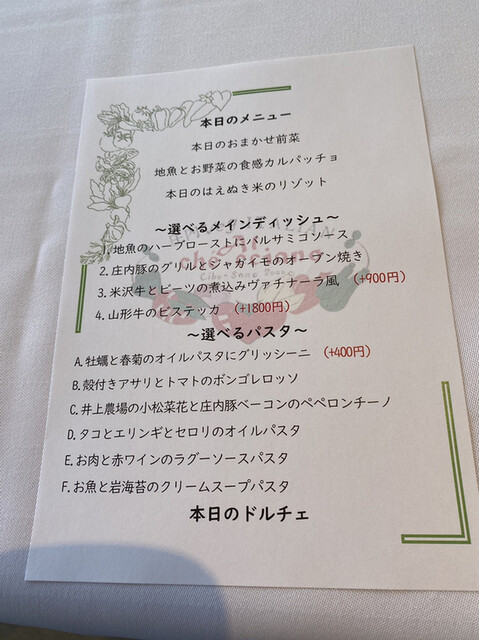 本日のメニュー
本日のおまかせ前菜
地魚とお野菜の食感カルパッチョ
本日のはえぬき米のリゾット
～選べるメインディッシュ～
1.地魚のハーブローストにバルサミコソース
2.庄内豚のグリルとジャガイモのオーブン焼き
3.米沢牛とビーツの煮込みヴァチナーラ風 (+900円)
4.山形牛のビステッカ (+1800円)
～選べるパスタ～
A.牡蠣と春菊のオイルパスタにグリッシーニ (+400円)
B.殻付きアサリとトマトのボンゴレロッソ
C.井上農場の小松菜花と庄内豚ベーコンのペペロンチーノ
D.タコとエリンギとセロリのオイルパスタ
E.お肉と赤ワインのラグーソースパスタ
F.お魚と岩海苔のクリームスープパスタ
本日のドルチェ